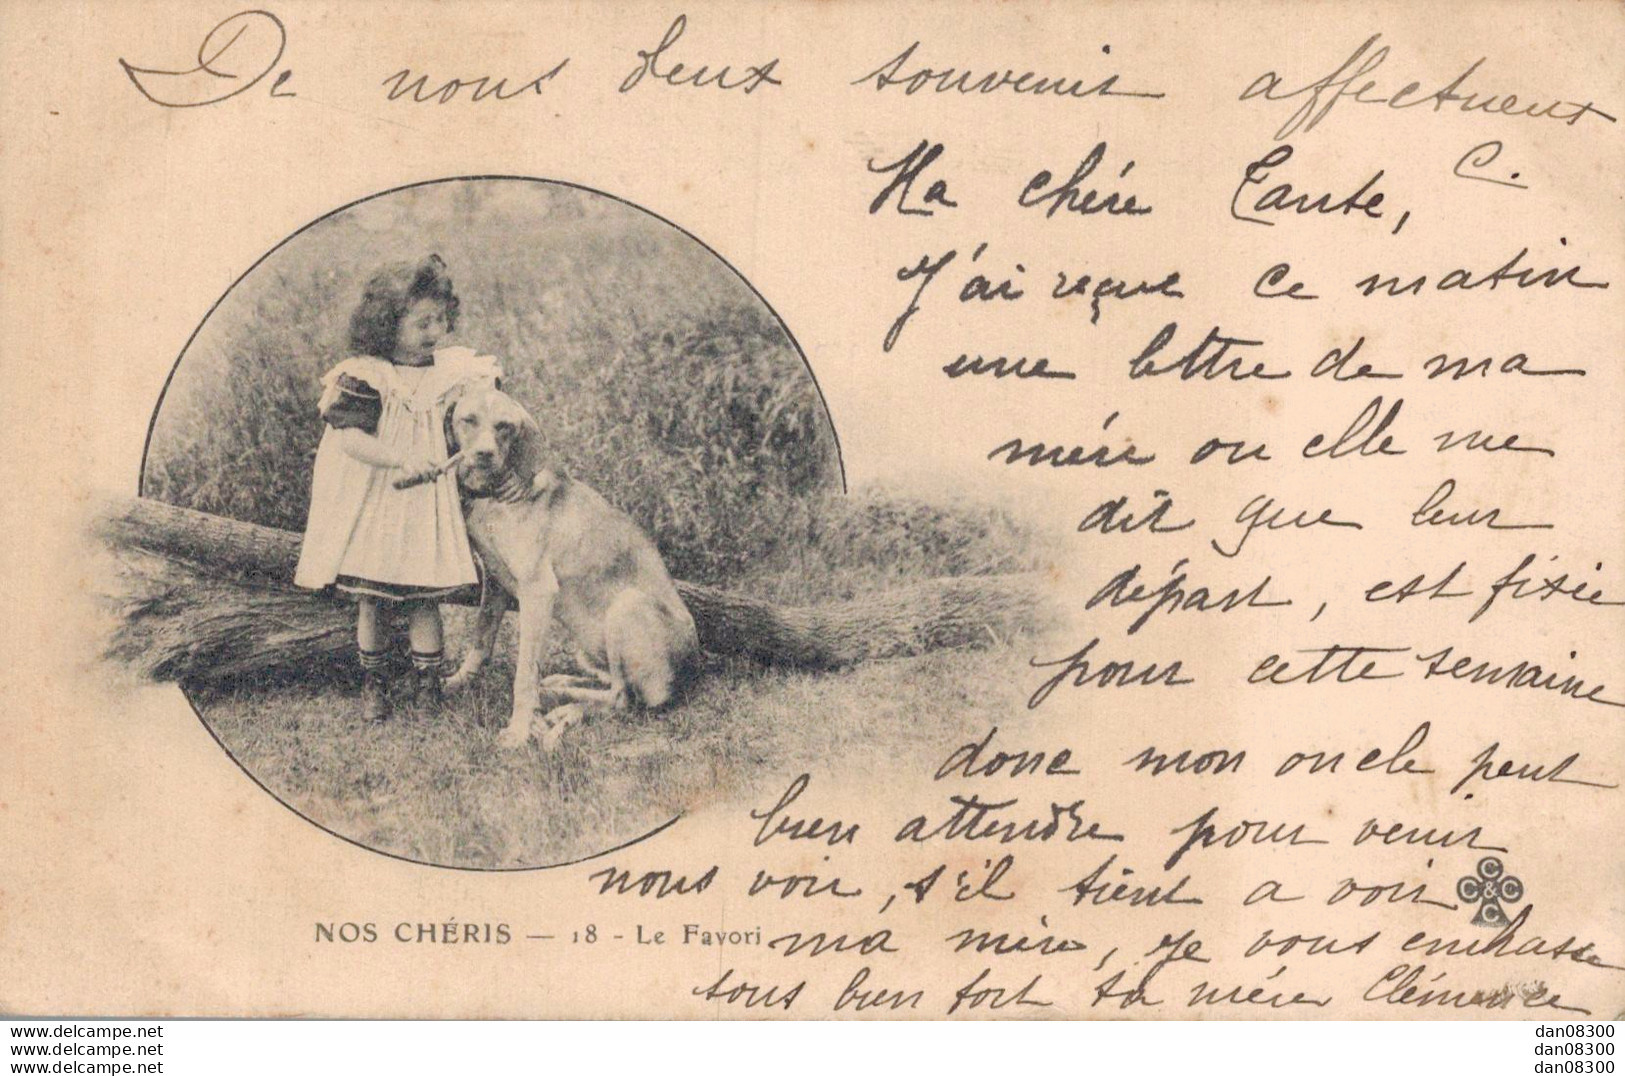 De nous deux souvenir affectueux
C.
Ma chère Tante,
J'ai reçue ce matin
une lettre de ma
mère ou elle me
dit que leur
départ, est fixée
pour cette semaine
donc mon oncle peut
bien attendre pour venir
nous voir, s'il tient a voir
ma mère, je vous embrasse
tous bien fort ta mère Clémence
NOS CHÉRIS — 18 - Le Favori
C C & C C
www.delcampe.net
www.delcampe.net
www.delcampe.net
dan08300
dan08300
dan08300